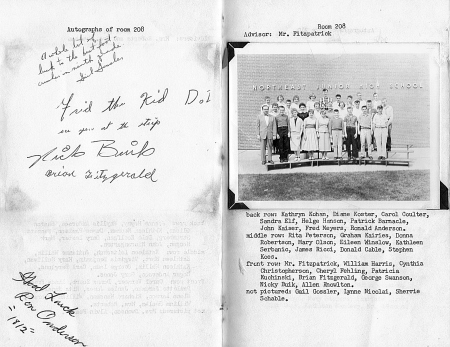 Autographs of room 208
luck to the best foot
Frid the Kid
see you at the strip
Nick Buik
Brian Fitzgerald
Good Luck
Ron Anderson
"1912"
Room 208
Advisor: Mr. Fitzpatrick
NORTHEAST JUNIOR HIGH SCHOOL
back row: Kathryn Kohan, Diane Koster, Carol Coulter,
Sandra Elf, Helge Hanson, Patrick Barnacle,
John Kaiser, Fred Meyers, Ronald Anderson.
middle row: Rita Peterson, Graham Kairies, Donna
Robertson, Mary Olson, Eileen Winslow, Kathleen
Serbanic, James Ricci, Donald Gable, Stephen
Koss.
front row: Mr. Fitzpatrick, William Harris, Cynthia
Christopherson, Cheryl Fehling, Patricia
Ruchinski, Brian Fitzgerald, George Swanson,
Nicky Buik, Allen Knowlton.
not pictured: Gail Gossler, Lynne Nicolai, Sherrie
Schable.